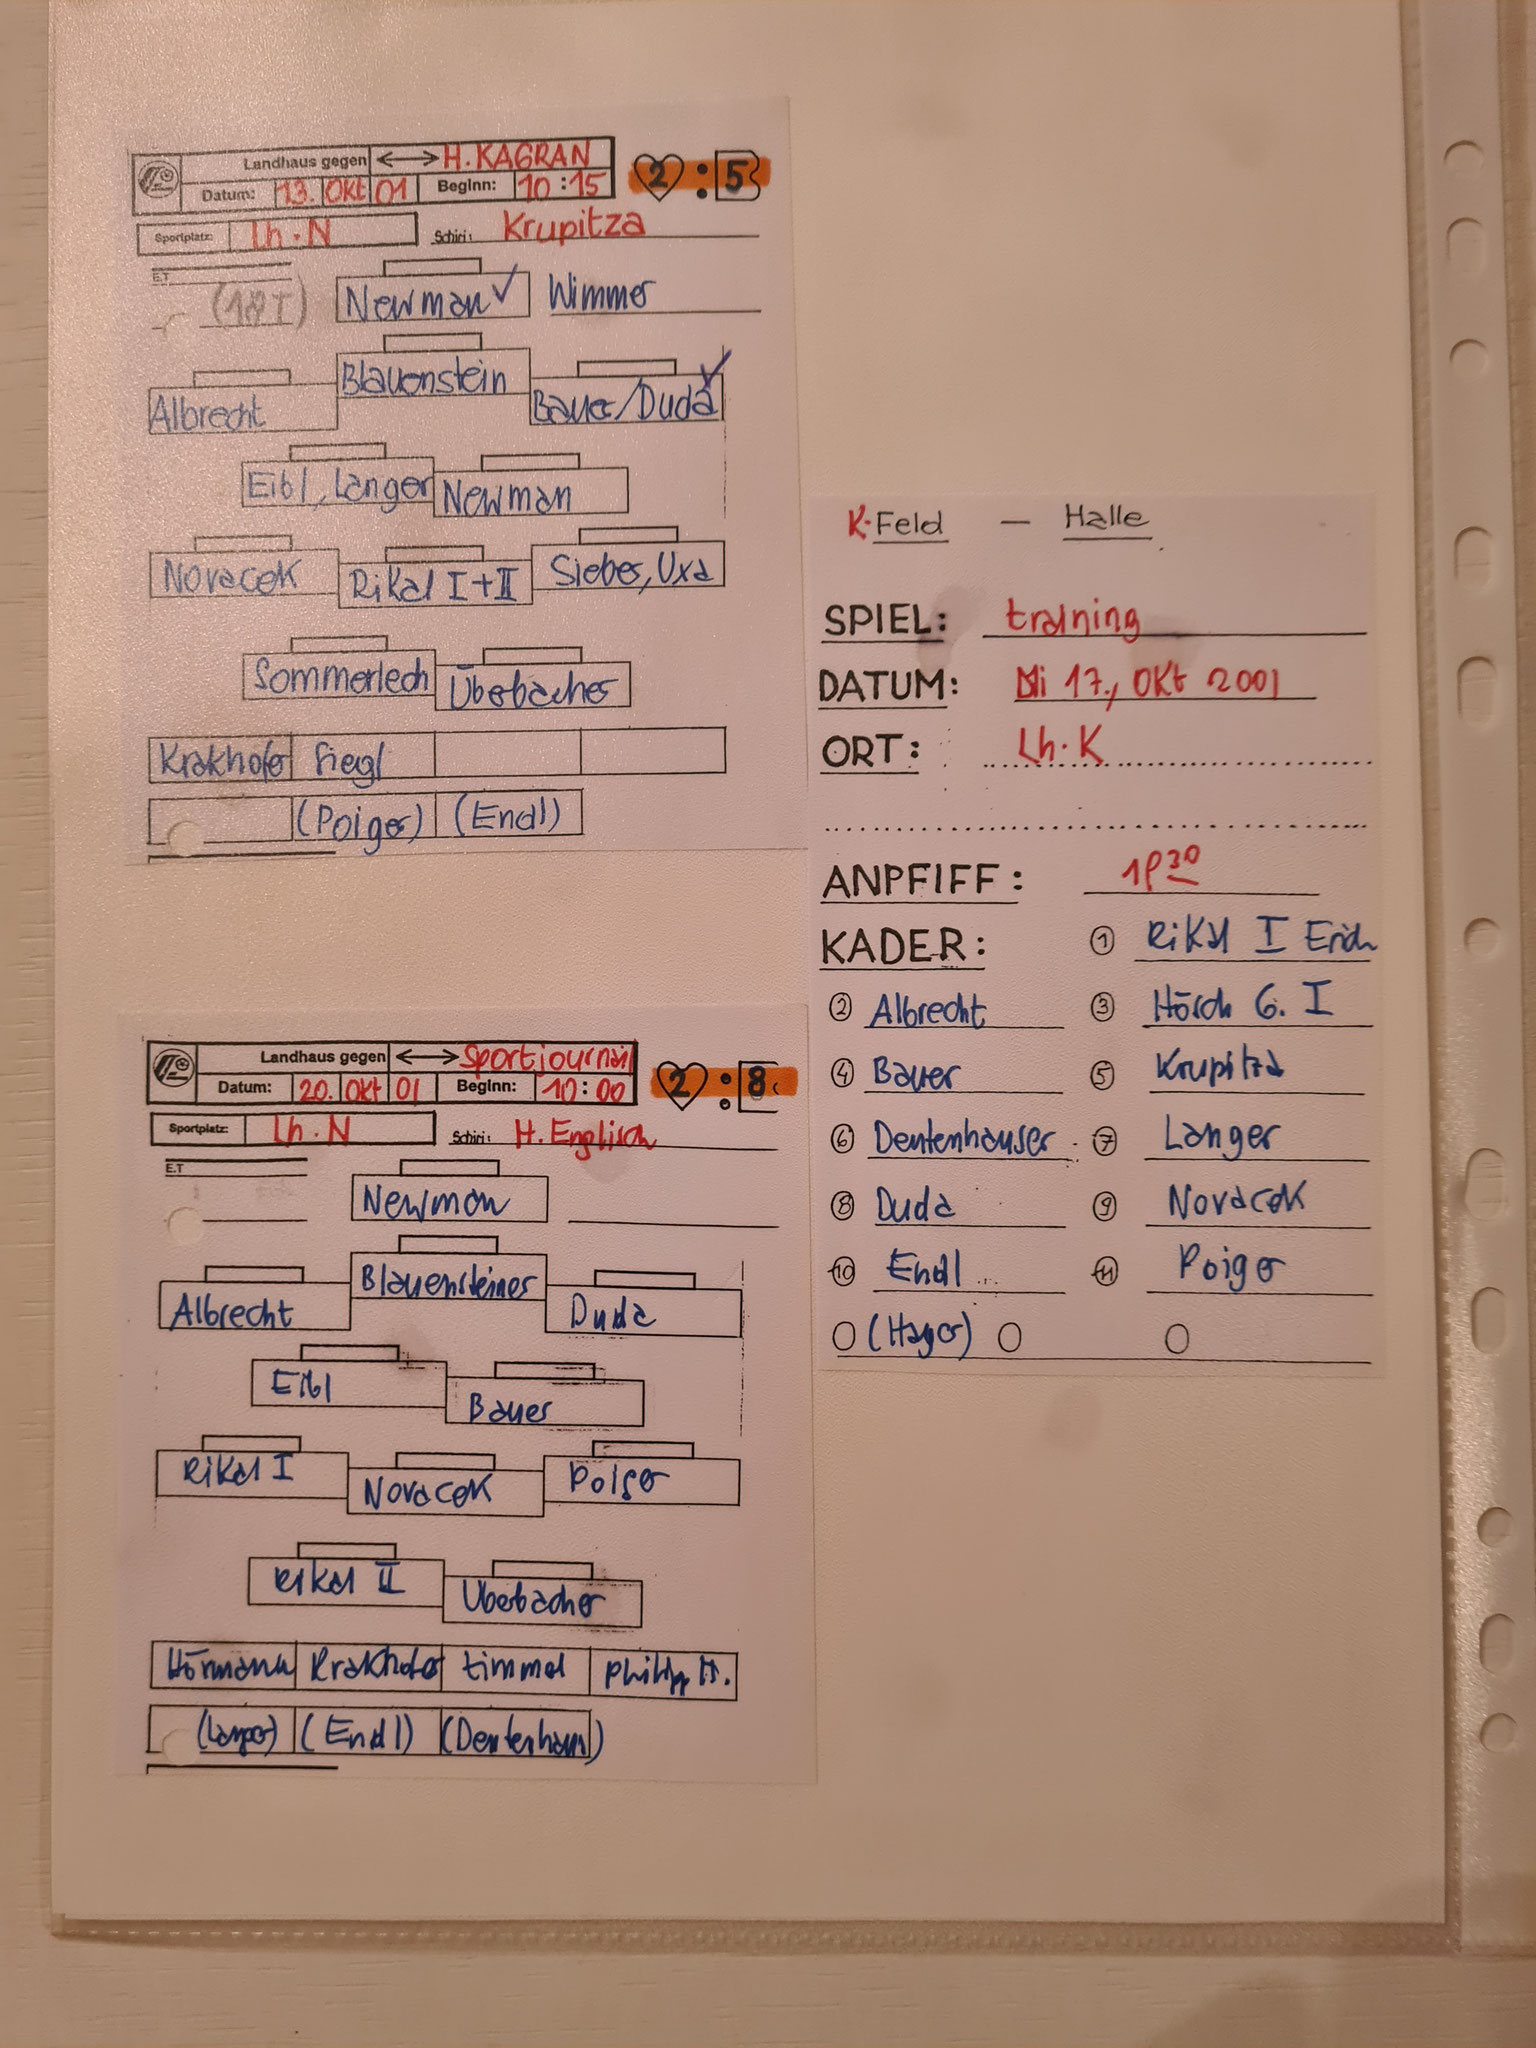 Landhaus gegen ↔ H. KAGRAN
Datum: 13. Okt 01 Beginn: 10:15
2 : 5
Sportplatz: Lh. N Schiri: Krupitza
E.T
Newman ✓ Wimmer
Blauenstein
Albrecht Bauer/Duda ✓
Eibl, Langer Newman
Novacek Rikal I + II Sieber, Uxa
Sommerlech Überbacher
Krakhofer Siegl
(Poiger) (Endl)
Landhaus gegen ↔ Sportjournal
Datum: 20. Okt 01 Beginn: 10:00
2 : 8
Sportplatz: Lh. N Schiri: H. Englisch
E.T
Newman
Blauensteiner
Albrecht Duda
Eibl Bauer
Rikal I Novacek Poiger
Rikal II Überbacher
Hörmann Krakhofer Timmel Philipp H.
(Langer) (Endl) (Deutenhaus)
K. Feld — Halle
SPIEL: training
DATUM: Mi 17., Okt 2001
ORT: Lh. K
ANPFIFF:
KADER: 1 Rikal I Erich
2 Albrecht 3 Hösch G. I
4 Bauer 5 Krupitza
6 Deutenhauser 7 Langer
8 Duda 9 Novacek
10 Endl 11 Poiger
(Hager)